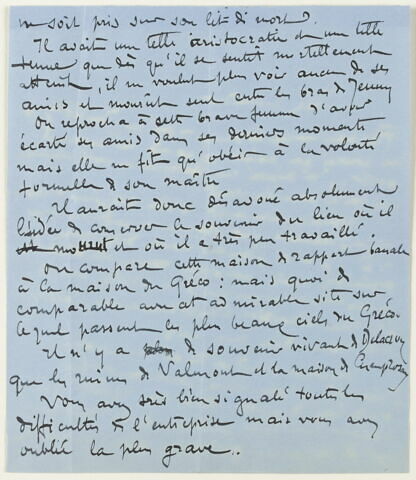 ne soit pris sur son lit de mort.
Il avait une telle aristocratie et une telle
tenue que dès qu'il se sentit mortellement
atteint, il ne voulut plus voir aucun de ses
amis et mourut seul entre les bras de Jenny
On reprocha à cette brave femme d'avoir
écarté ses amis dans ses derniers moments
mais elle ne fit qu'obéir à la volonté
formelle de son maître
Il aurait donc désavoué absolument
l'idée de conserver le souvenir du lieu où il
mourut et où il a très peu travaillé.
On compare cette maison de rapport banale
à la maison du Gréco : mais quoi de
comparable avec cet admirable site sur
lequel passent les plus beaux ciels du Gréco.
Il n'y a de souvenir vivant de Delacroix
que les ruines de Valmont et la maison de Champrosay
Vous avez très bien signalé toutes les
difficultés de l'entreprise mais vous avez
oublié la plus grave...